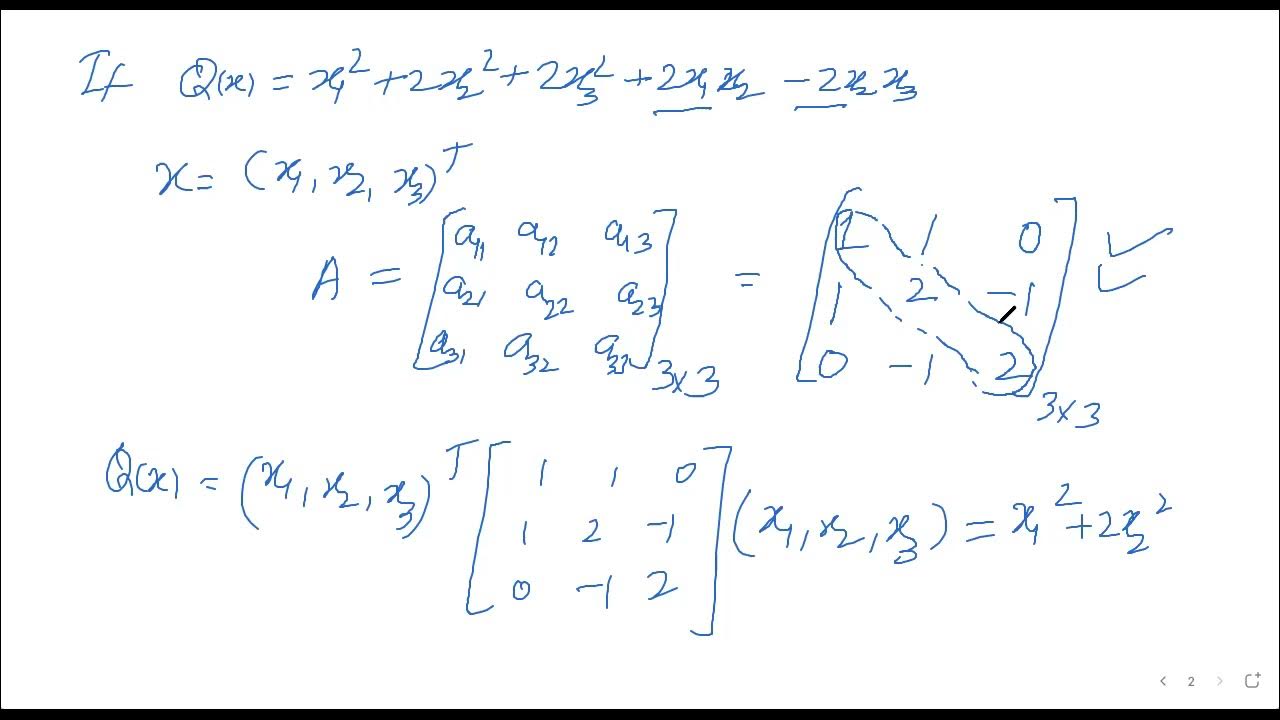 If Q(x) = x₁² + 2x₂² + 2x₃² + 2x₁x₂ − 2x₂x₃
x = (x₁, x₂, x₃)ᵀ
A = [a₁₁ a₁₂ a₁₃ = [1 1 0
a₂₁ a₂₂ a₂₃ 1 2 −1
a₃₁ a₃₂ a₃₃]3×3 0 −1 2]3×3
Q(x) = (x₁, x₂, x₃)ᵀ [1 1 0
1 2 −1 (x₁, x₂, x₃) = x₁² + 2x₂²
0 −1 2]
< 2 >